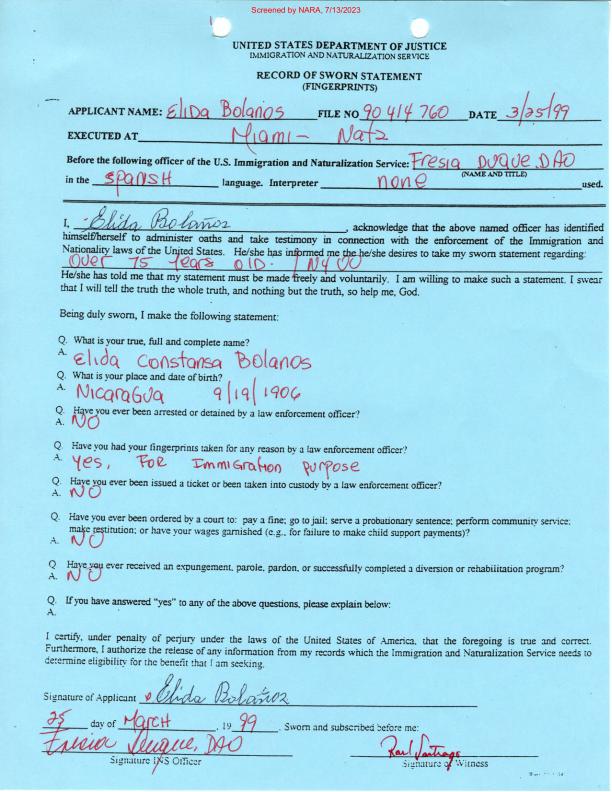 Screened by NARA, 7/13/2023
UNITED STATES DEPARTMENT OF JUSTICE
IMMIGRATION AND NATURALIZATION SERVICE
RECORD OF SWORN STATEMENT
(FINGERPRINTS)
APPLICANT NAME: Elida Bolanos FILE NO 90 414 760 DATE 3/25/99
EXECUTED AT Miami - Natz
Before the following officer of the U.S. Immigration and Naturalization Service: Fresia Duque, DAO
(NAME AND TITLE)
in the Spanish language. Interpreter none used.
I, Elida Bolaños, acknowledge that the above named officer has identified
himself/herself to administer oaths and take testimony in connection with the enforcement of the Immigration and
Nationality laws of the United States. He/she has informed me the he/she desires to take my sworn statement regarding:
Over 75 years old.
He/she has told me that my statement must be made freely and voluntarily. I am willing to make such a statement. I swear
that I will tell the truth the whole truth, and nothing but the truth, so help me, God.
Being duly sworn, I make the following statement:
Q. What is your true, full and complete name?
A. Elida Constansa Bolanos
Q. What is your place and date of birth?
A. Nicaragua 9/19/1906
Q. Have you ever been arrested or detained by a law enforcement officer?
A. NO
Q. Have you had your fingerprints taken for any reason by a law enforcement officer?
A. Yes, For Immigration purpose
Q. Have you ever been issued a ticket or been taken into custody by a law enforcement officer?
A. NO
Q. Have you ever been ordered by a court to: pay a fine; go to jail; serve a probationary sentence; perform community service;
make restitution; or have your wages garnished (e.g., for failure to make child support payments)?
A. NO
Q Have you ever received an expungement, parole, pardon, or successfully completed a diversion or rehabilitation program?
A. NO
Q. If you have answered "yes" to any of the above questions, please explain below:
A.
I certify, under penalty of perjury under the laws of the United States of America, that the foregoing is true and correct.
Furthermore, I authorize the release of any information from my records which the Immigration and Naturalization Service needs to
determine eligibility for the benefit that I am seeking.
Signature of Applicant Elida Bolaños
25 day of March, 19 99. Sworn and subscribed before me:
Fresia Duque, DAO Raul Santiago
Signature INS Officer Signature of Witness